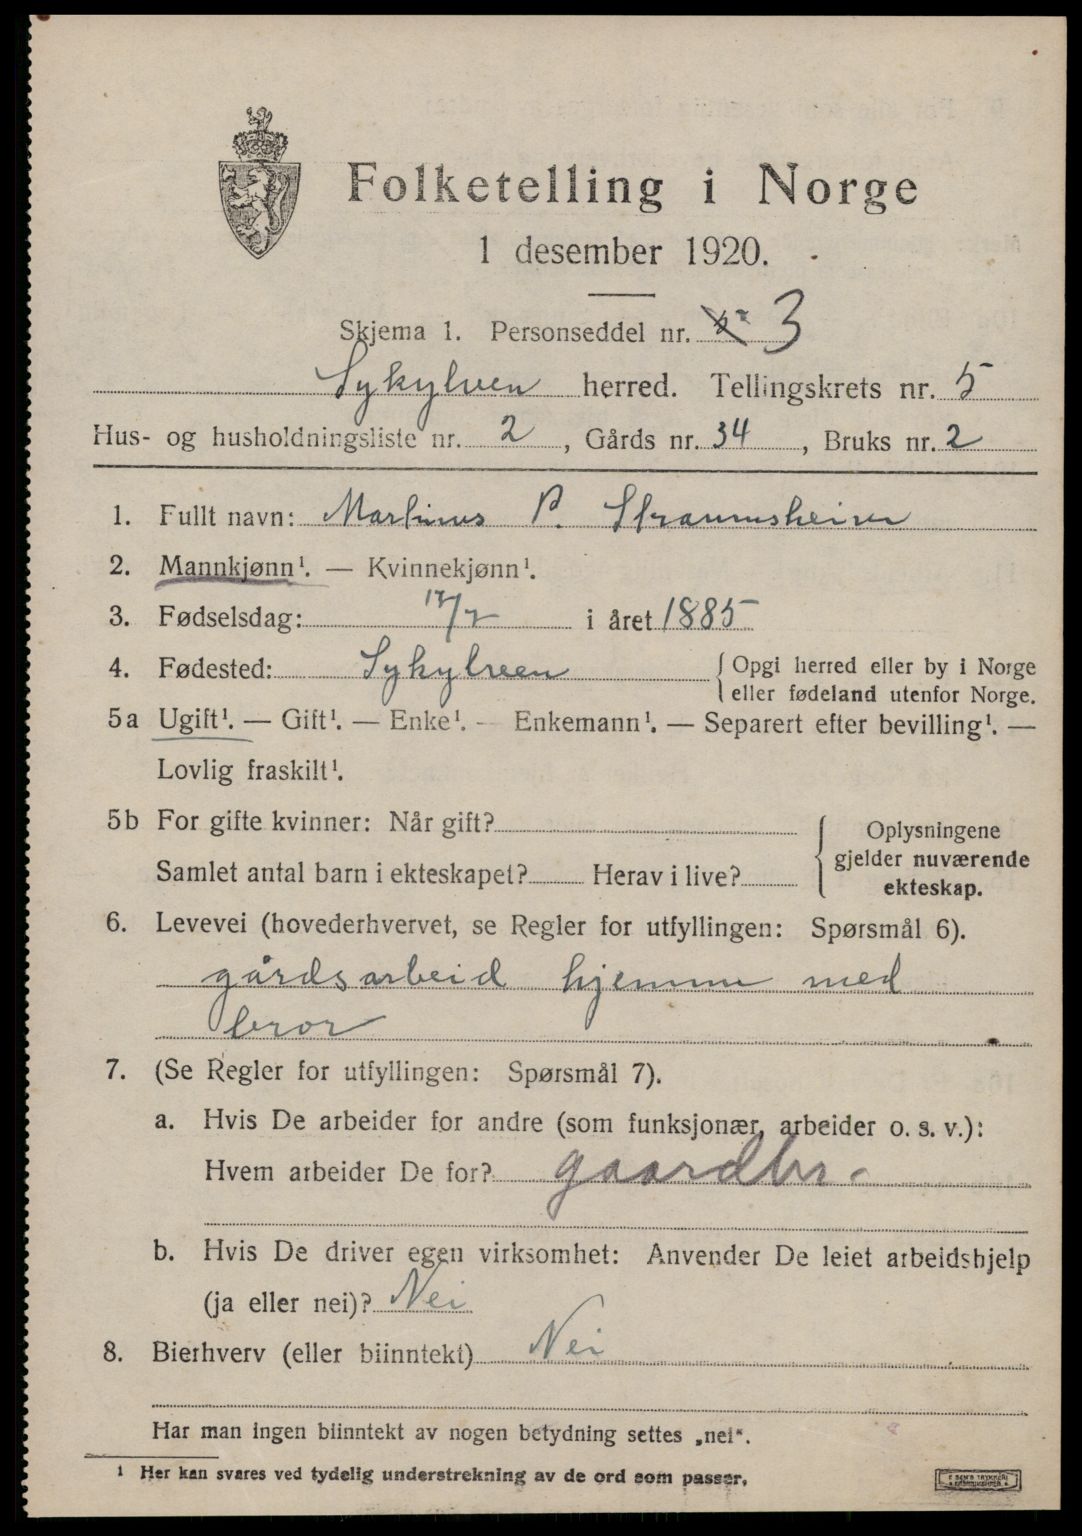 Folketelling i Norge
1 desember 1920.
Skjema 1. Personseddel nr. 3
Sykylven herred. Tellingskrets nr. 5
Hus- og husholdningsliste nr. 2, Gårds nr. 34, Bruks nr. 2
1. Fullt navn: Martinus P. Straumsheim
2. Mannkjønn¹. — Kvinnekjønn¹.
3. Fødselsdag: 17/7 i året 1885
4. Fødested: Sykylveen { Opgi herred eller by i Norge
eller fødeland utenfor Norge.
5a Ugift¹. — Gift¹. — Enke¹. — Enkemann¹. — Separert efter bevilling¹. —
Lovlig fraskilt¹.
5b For gifte kvinner: Når gift?
Samlet antal barn i ekteskapet? Herav i live?
{ Oplysningene
gjelder nuværende
ekteskap.
6. Levevei (hovederhvervet, se Regler for utfyllingen: Spørsmål 6).
gårdsarbeid hjemme med
bror
7. (Se Regler for utfyllingen: Spørsmål 7).
a. Hvis De arbeider for andre (som funksjonær, arbeider o. s. v.):
Hvem arbeider De for? gaardbr.
b. Hvis De driver egen virksomhet: Anvender De leiet arbeidshjelp
(ja eller nei)? Nei
8. Bierhverv (eller biinntekt) Nei
Har man ingen biinntekt av nogen betydning settes „nei“.
¹ Her kan svares ved tydelig understrekning av de ord som passer.